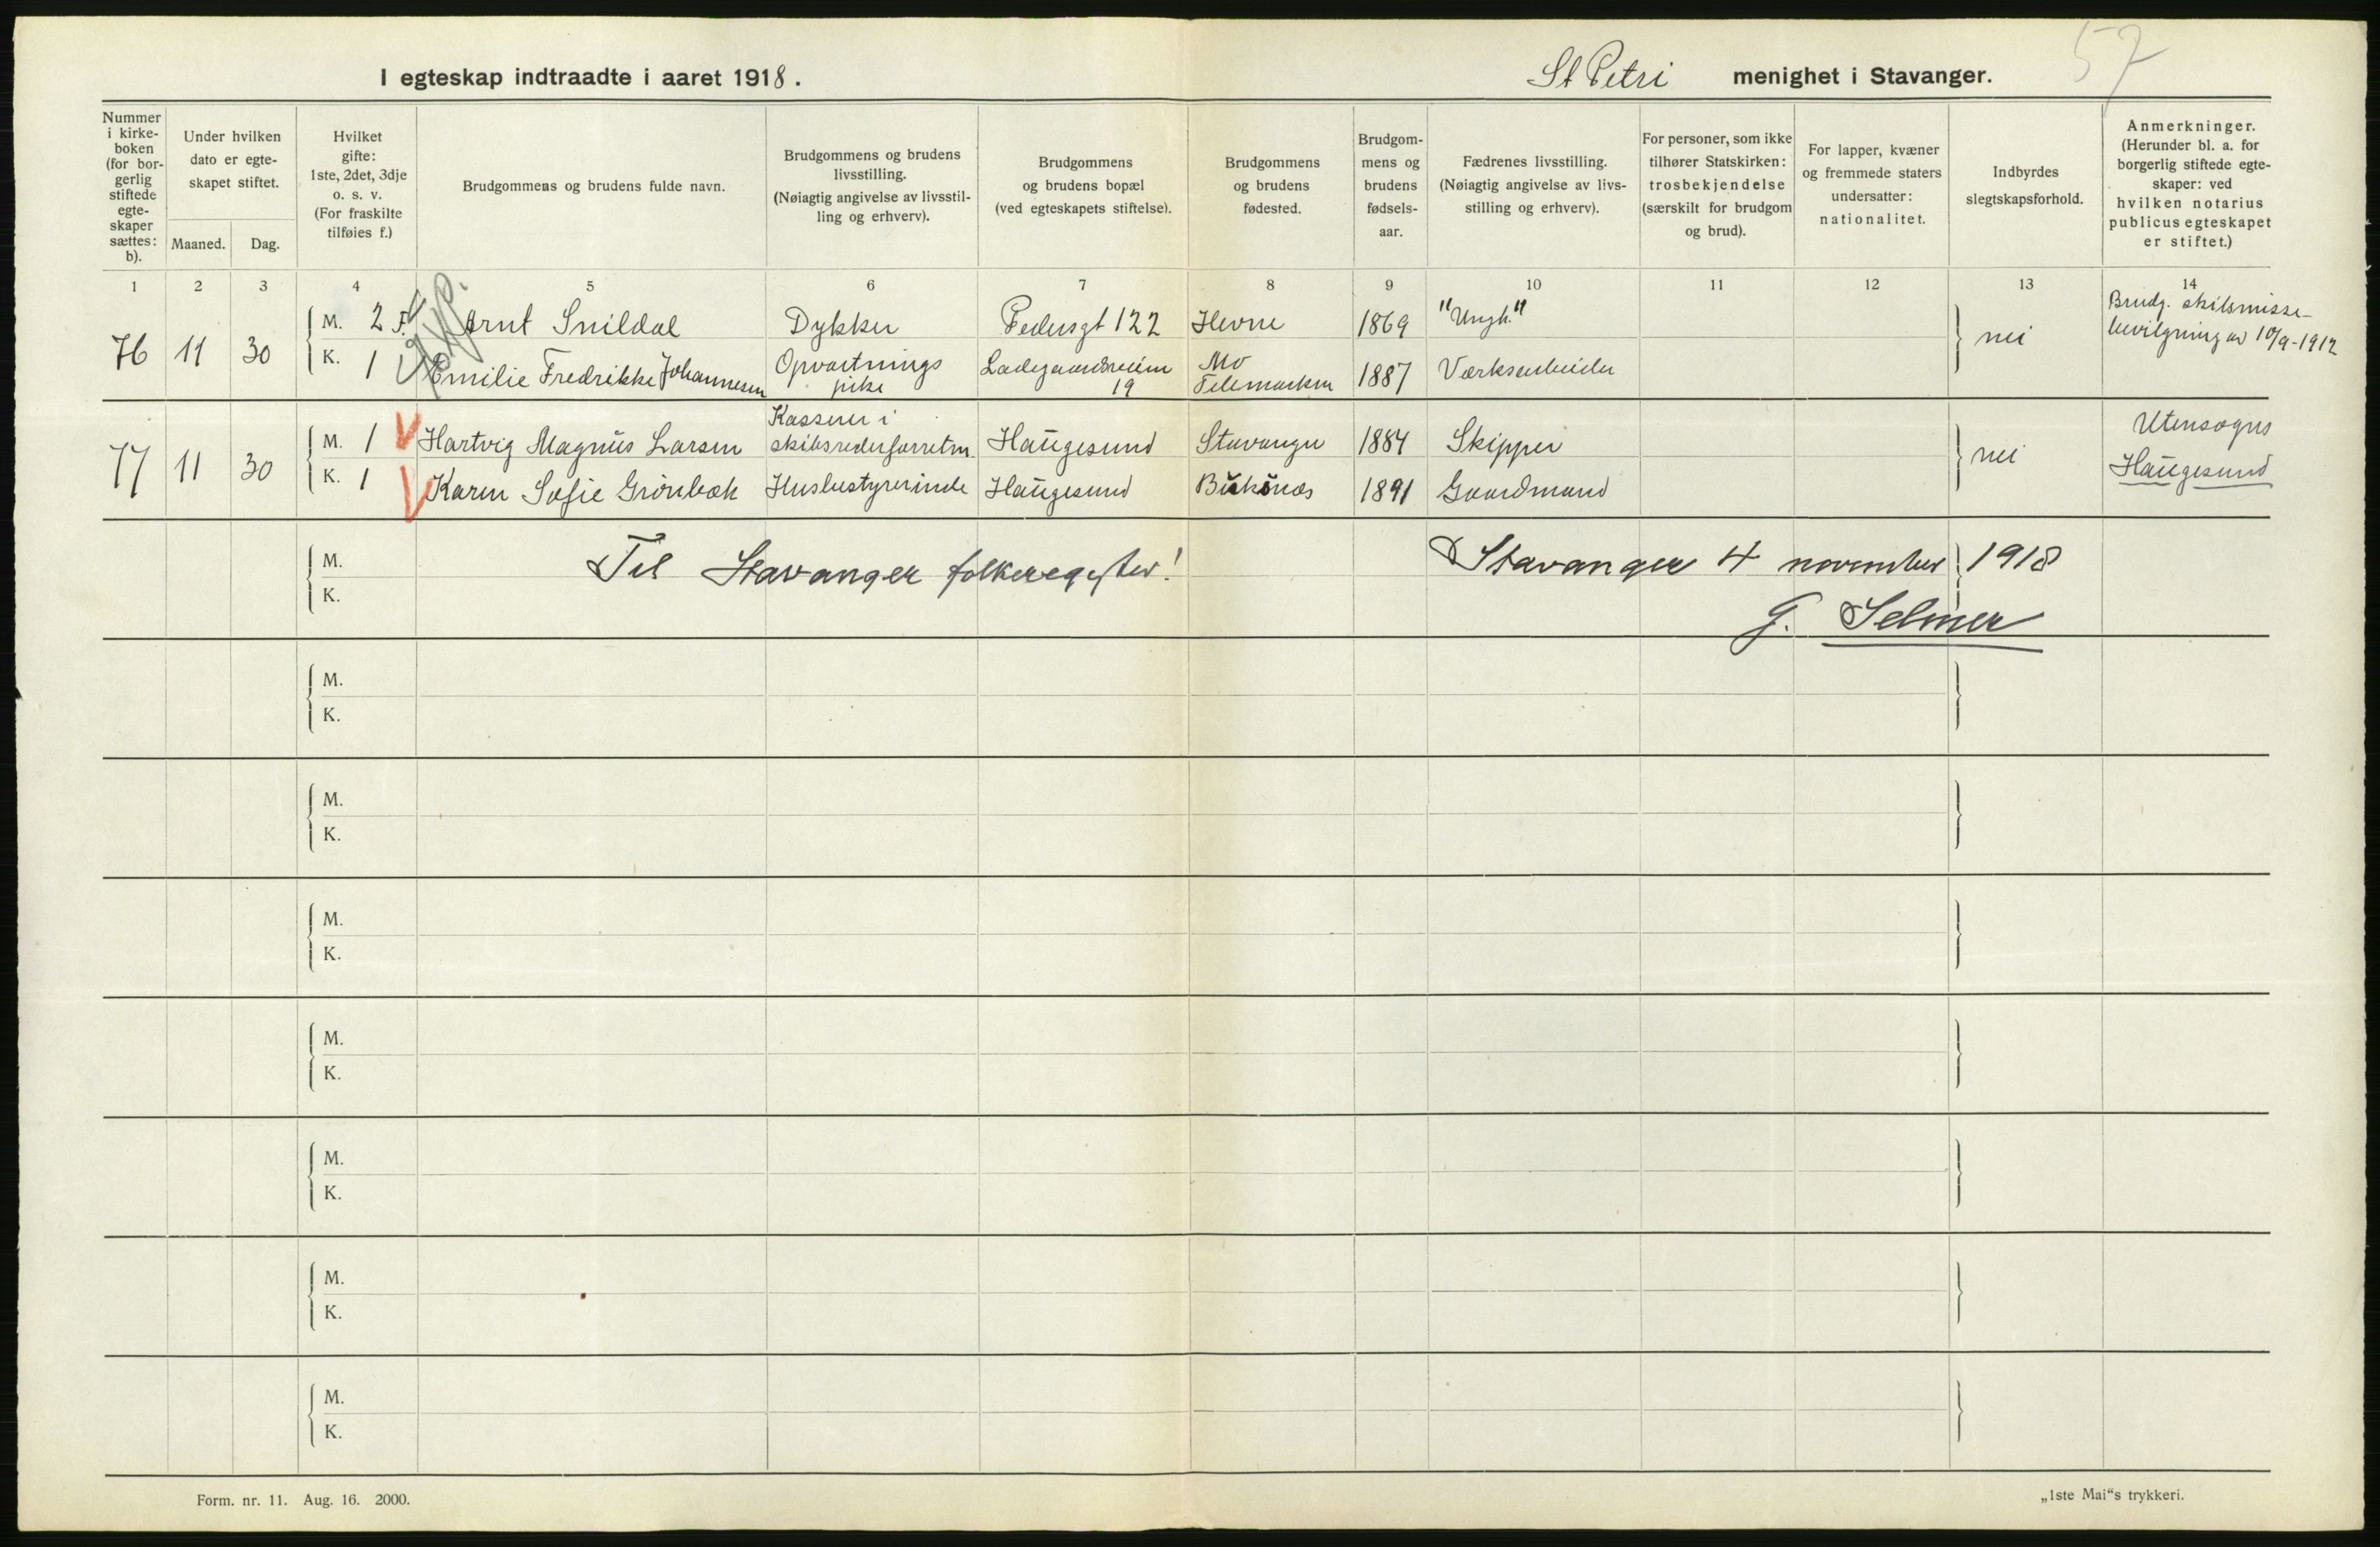 57
I egteskap indtraadte i aaret 1918.
St Petri menighet i Stavanger.
Nummer i kirke-boken (for bor-gerlig stiftede egte-skaper sættes: b).
Under hvilken dato er egte-skapet stiftet.
Maaned. Dag.
Hvilket gifte: 1ste, 2det, 3dje o. s. v. (For fraskilte tilføies f.)
Brudgommens og brudens fulde navn.
Brudgommens og brudens livsstilling. (Nøiagtig angivelse av livsstil-ling og erhverv).
Brudgommens og brudens bopæl (ved egteskapets stiftelse).
Brudgommens og brudens fødested.
Brudgom-mens og brudens fødsels-aar.
Fædrenes livsstilling. (Nøiagtig angivelse av livs-stilling og erhverv).
For personer, som ikke tilhører Statskirken: trosbekjendelse (særskilt for brudgom og brud).
For lapper, kvæner og fremmede staters undersatter: nationalitet.
Indbyrdes slegtskapsforhold.
Anmerkninger. (Herunder bl. a. for borgerlig stiftede egte-skaper: ved hvilken notarius publicus egteskapet er stiftet.)
1 2 3 4 5 6 7 8 9 10 11 12 13 14
76 11 30
M. 2 F. Arnt Snildal Dykker Pedersgt 122 Hevne 1869 "Ungk." nei Brudg. skilsmisse-
bevilgning av 10/9-1912
K. 1 Emilie Fredrikke Johannesen Opvartnings Ladegaardsveien Mo 1887 Værksarbeider
pike 19 Telemarken
77 11 30
Kasserer i
M. 1 Hartvig Magnus Larsen skibsrederforretn. Haugesund Stavanger 1884 Skipper nei Utensogns
K. 1 Karen Sofie Grönbæk Husbestyrerinde Haugesund Buksnes 1891 Gaardmand Haugesund
M.
K.
Til Stavanger folkeregister!
Stavanger 4 november 1918
G. Selmer
M.
K.
M.
K.
M.
K.
M.
K.
M.
K.
M.
K.
M.
K.
Form. nr. 11. Aug. 16. 2000.
„1ste Mai“s trykkeri.